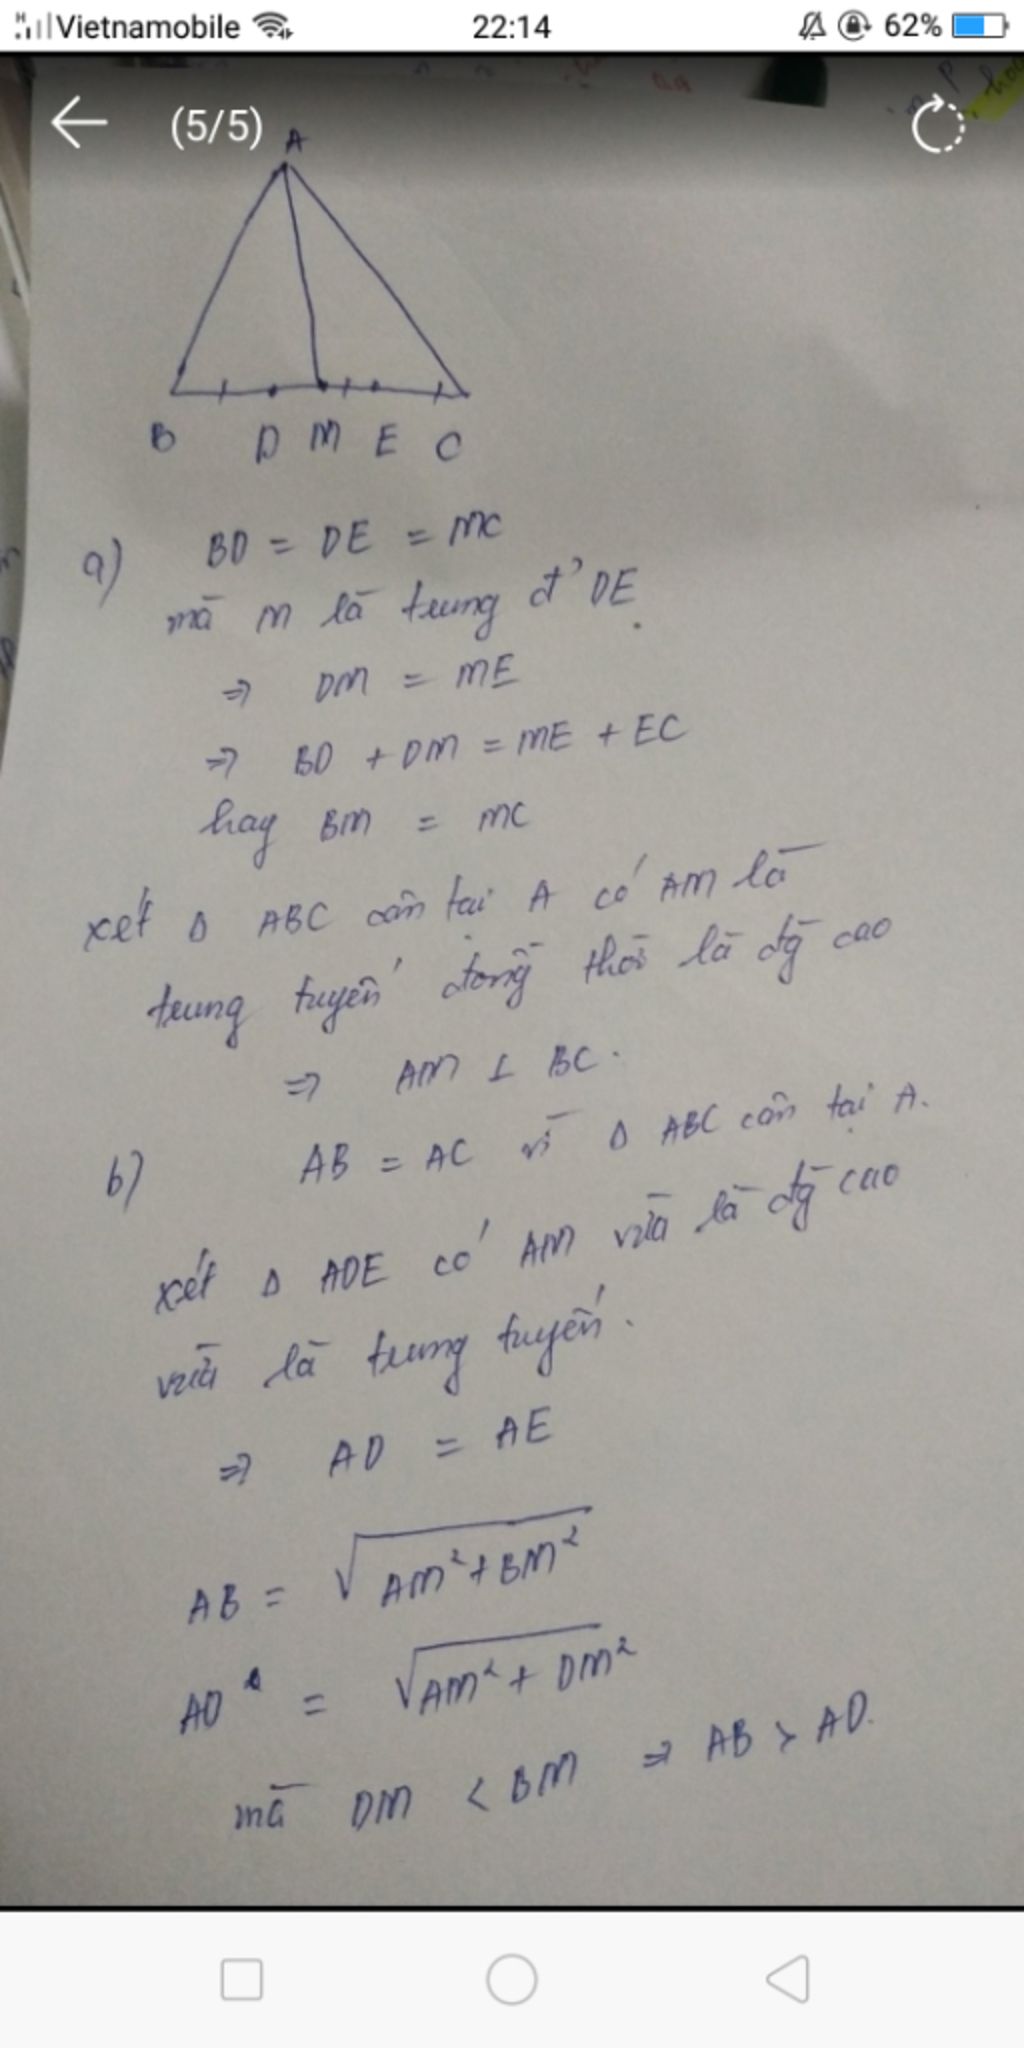 Vietnamobile 22:14 62%
(5/5)
A
B D M E C
a) BD = DE = MC
mà M là trung đ' DE
=> DM = ME
=> BD + DM = ME + EC
hay BM = MC
xét Δ ABC cân tại A có AM là
trung tuyến đồng thời là đg cao
=> AM ⊥ BC.
b) AB = AC vì Δ ABC cân tại A.
xét Δ ADE có AM vừa là đg cao
vừa là trung tuyến.
=> AD = AE
AB = √AM² + BM²
AD = √AM² + DM²
mà DM < BM => AB > AD.